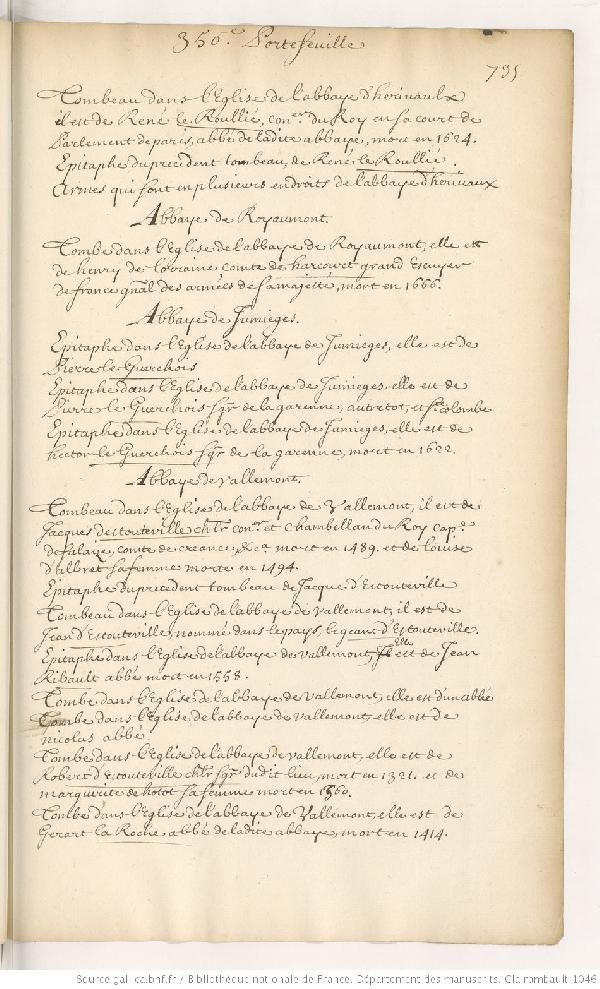 356.e Portefeuille
735
Tombeau dans l'Eglise de l'abbaye d'herivaulx
il est de René le Roullié, con.er du Roy en sa court de
Parlement de paris, abbé de ladite abbaye, mort en 1624.
Epitaphe du precedent tombeau, de René le Roullié.
Armes qui sont en plusieurs endroits de l'abbaye d'herivaux
Abbaye de Royaumont.
Tombe dans l'Eglise de l'abbaye de Royaumont, elle est
de henry de lorraine comte de harcourt grand Escuyer
de france gnal des armées de sa majesté, mort en 1666.
Abbaye de Jumieges.
Epitaphe dans l'Eglise de l'abbaye de Jumieges, elle est de
Pierre le Guerchois
Epitaphe dans l'Eglise de l'abbaye de Jumieges, elle est de
Pierre le Guerchois sgr de la garenne, autretot, et Ste colombe
Epitaphe dans l'Eglise de l'abbaye de Jumieges, elle est de
hector le Guerchois sgr de la garenne, mort en 1622.
Abbaye de Vallemont.
Tombeau dans l'Eglise de l'abbaye de Vallemont, il est de
Jacques destouteville chlr con.er et Chambellan du Roy cap.e
de falaize, comte de creance, &c.a mort en 1489. et de louise
d'Albret sa femme morte en 1494.
Epitaphe du precedent tombeau de Jacque d'Estouteville
Tombeau dans l'Eglise de l'abbaye de vallemont, il est de
Jean d'Estouteville, nommé dans le pays, le geant d'Estouteville.
Epitaphe dans l'Eglise de l'abbaye de vallemont, elle est de Jean
Ribault abbé mort en 1558.
Tombe dans l'Eglise de l'abbaye de vallemont, elle est d'un abbé
Tombe dans l'Eglise de l'abbaye de vallemont, elle est de
nicolas abbé.
Tombe dans l'Eglise de l'abbaye de vallemont, elle est de
Robert d'Estouteville chlr sgr dudit lieu, mort en 1321. et de
marguerite de hotot sa femme morte en
Tombe dans l'Eglise de l'abbaye de Vallemont, elle est de
Gerart la Roche abbé de ladite abbaye, mort en 1414.
Source gallica.bnf.fr / Bibliothèque nationale de France. Département des manuscrits. Clairambault 1046